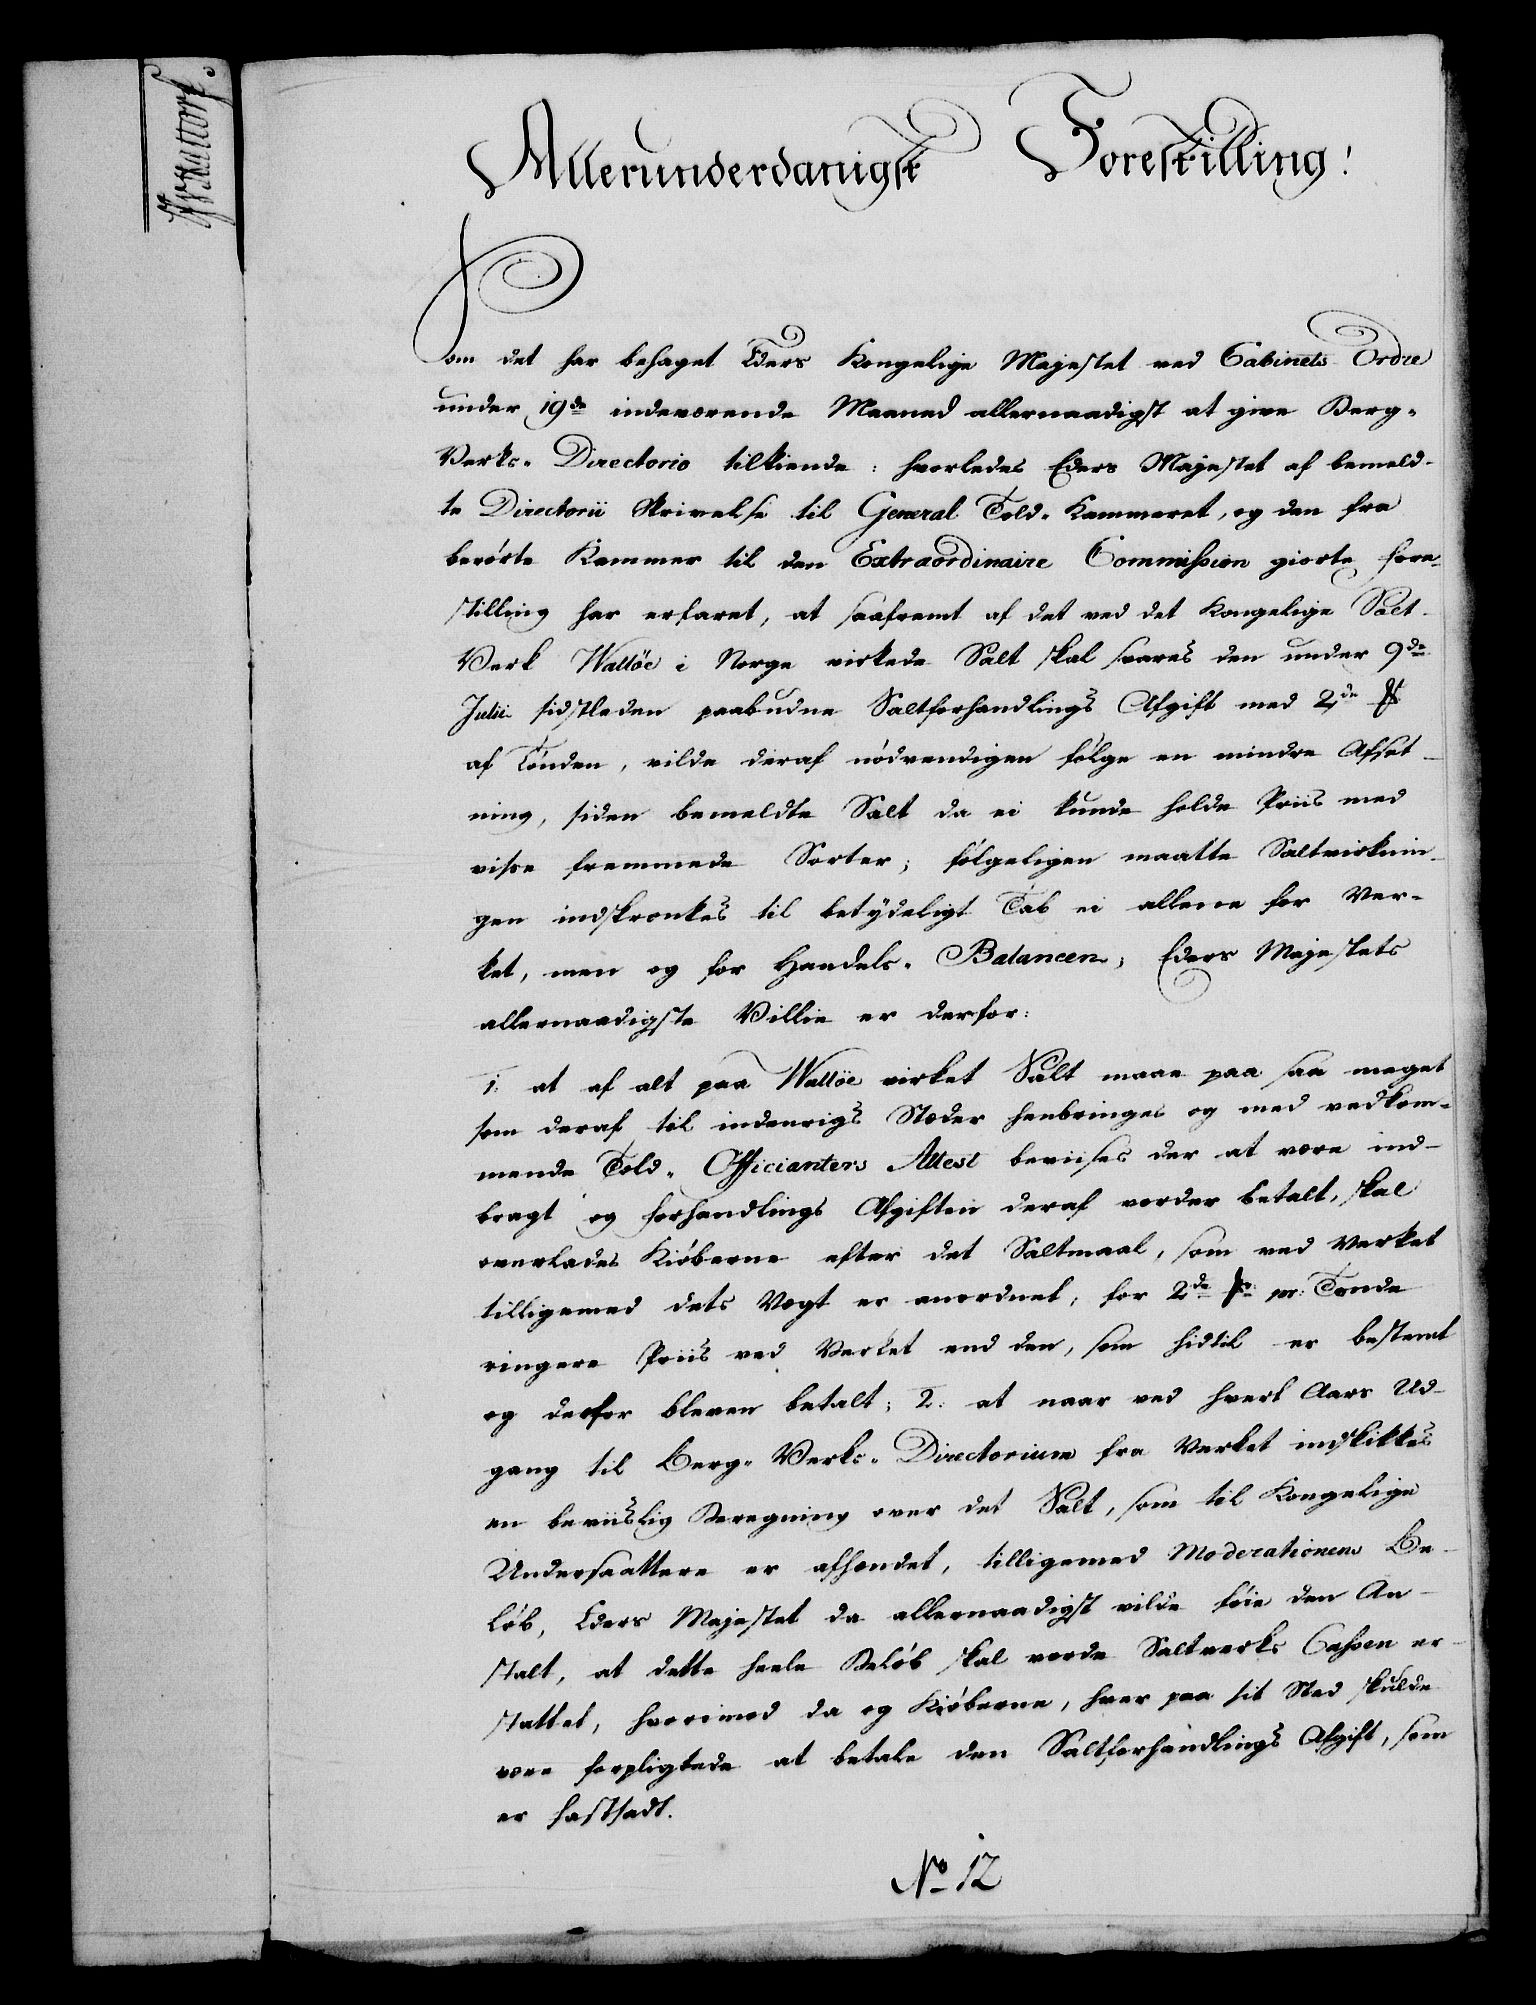 Allerunderdanigst Forestilling!
Som det har behaget Eders Kongelige Majestet ved Cabinets Ordre
under 19de indeværende Maaned allernaadigst at give Berg-
Verks- Directorio tilkiende: hvorledes Eders Majestet af bemeld-
te Directorii Skrivelse til General Told-Kammeret, og den fra
berörte Kammer til den Extraordinaire Commission giorte Fore-
stilling har erfaret, at saafremt af det ved det Kongelige Salt-
Verk Walløe i Norge virkede Salt skal svares den under 9de
Julii sidstleden paabudne Saltforhandlings Afgift med 2de ß
af Tönden, vilde deraf nödvendigen fölge en mindre Afsæt-
ning, siden bemeldte Salt da ei kunde holde Priis med
visse fremmede Sorter; fölgeligen maatte Saltvirknin-
gen indskrænkes til betydeligt Tab ei allene for Ver-
ket, men og for Handels-Balancen; Eders Majestets
allernaadigste Villie er derfor:
1: at af alt paa Walløe virket Salt maae paa saa meget
som deraf til indenrigs Stæder henbringes og med vedkom-
mende Told-Officianters Attest beviises der at være ind-
bragt og forhandlings Afgiften deraf vorder betalt, skal
overlades Kiöberne efter det Saltmaal, som ved Verket
tilligemed dets Vægt er anordnet, for 2de ß pr: Tønde
ringere Priis ved Verket end den, som hidtil er bestemt
og derfor bleven betalt; 2: at naar ved hvert Aars Ud-
gang til Berg-Verks-Directorium fra Verket indskikkes
en beviislig Beregning over det Salt, som til Kongelige
Undersaattere er afhændet, tilligemed Moderationens Be-
löb, Eders Majestet da allernaadigst vilde föie den An-
stalt, at dette heele Belöb skal vorde Saltverks Cassen er-
stattet, hvorimod da og Kiöberne, hver paa sit Sted skulde
være forpligtede at betale den Saltforhandlings Afgift, som
er fastsadt.
No 12